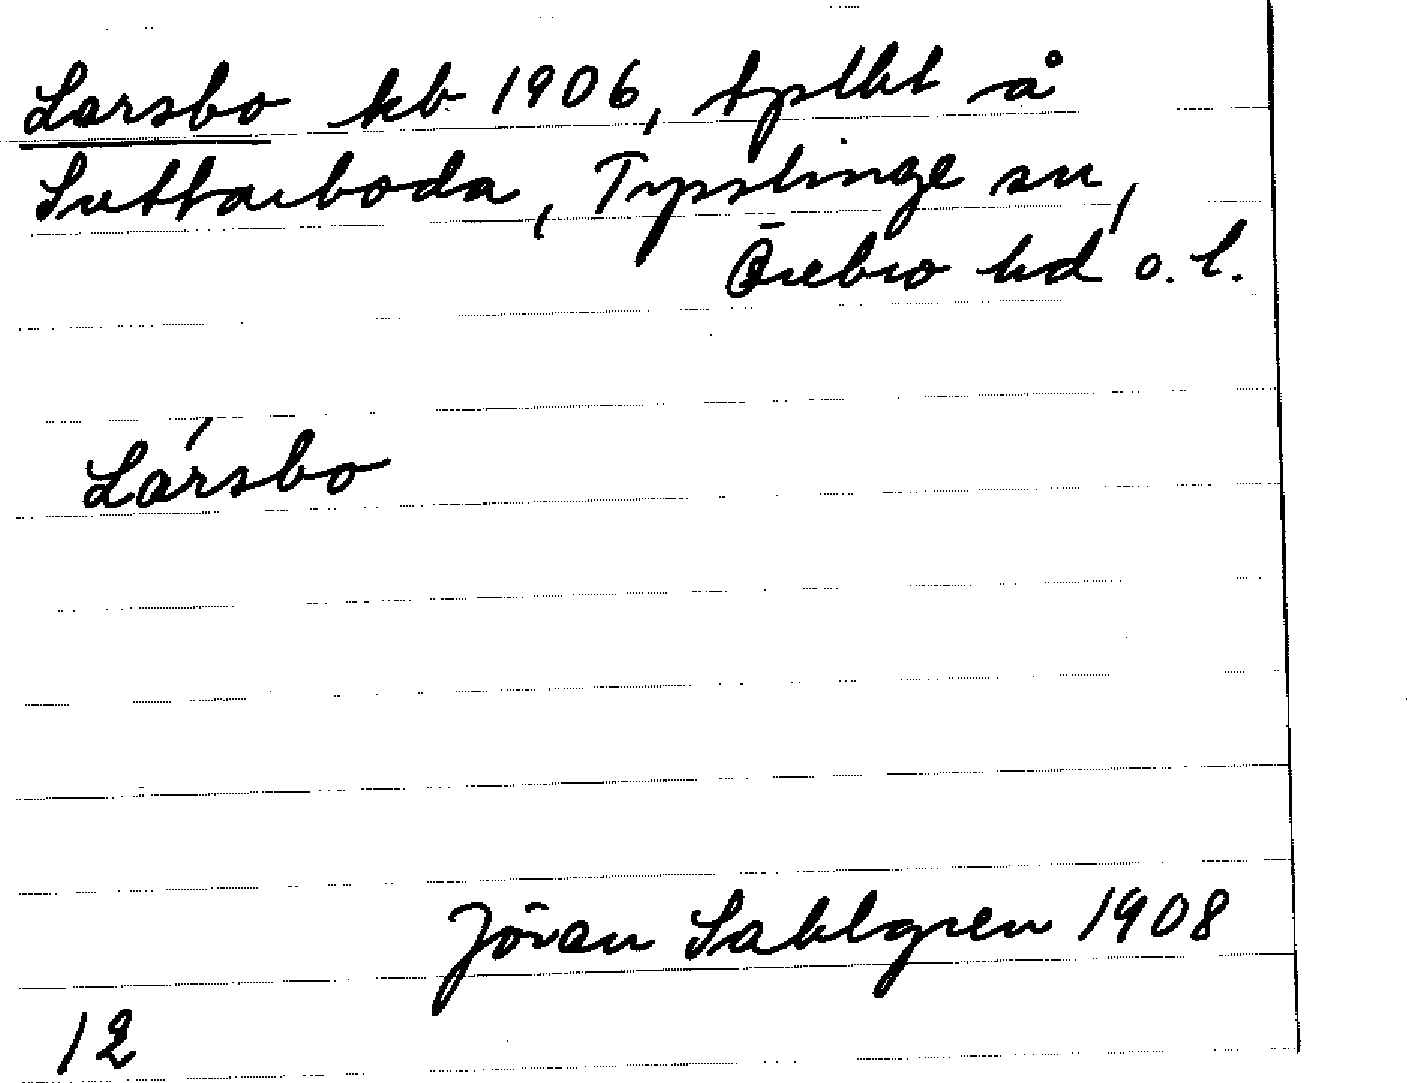 Larsbo kb 1906, tplht å
Suttarboda, Tysslinge sn,
Örebro hd o. l.
Lársbo
Jöran Sahlgren 1908
12